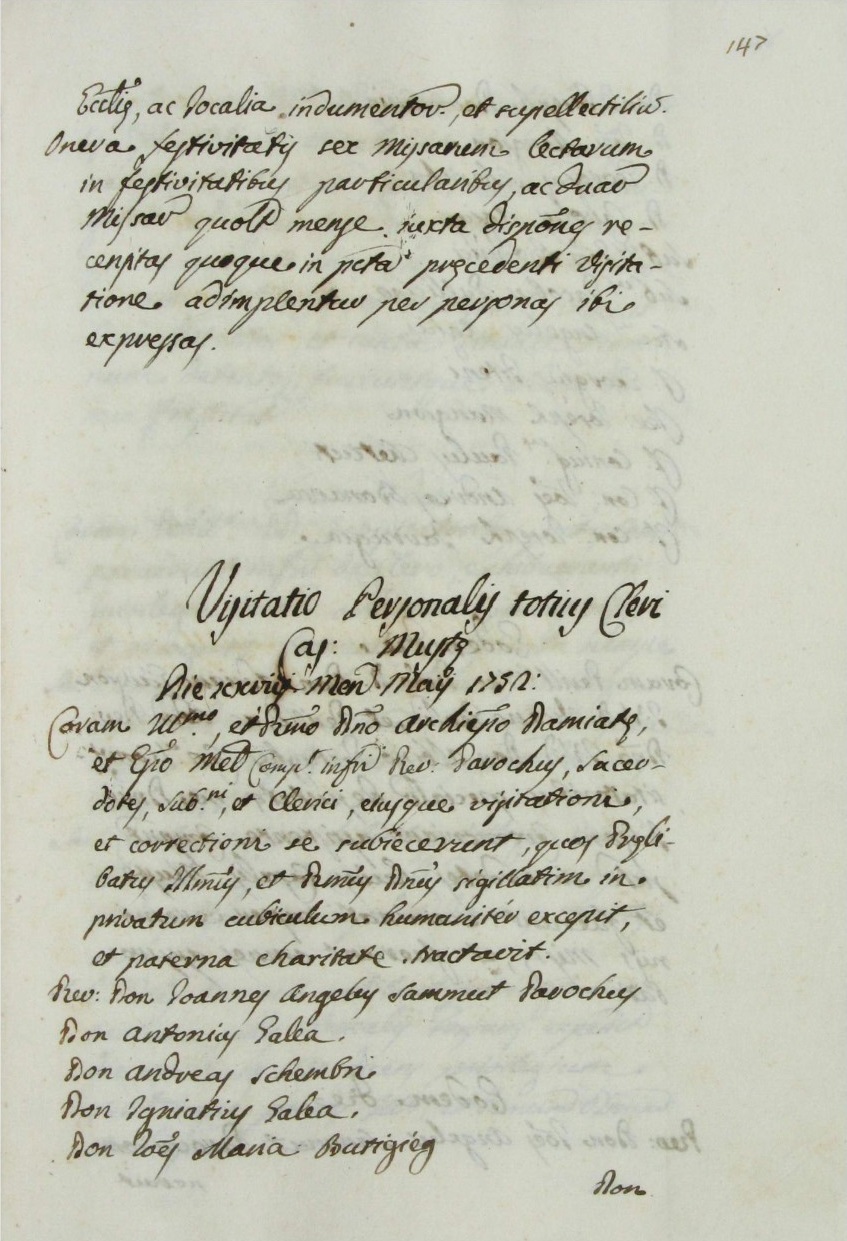 147
Ecclię, ac Jocalia indumentor., et supellectiliũ.
Onera festivitatis sex Missarum lectarum
in festivitatibus particularibus, ac duar
Missar quolt mense juxta disponẽs re-
censitas quoque in pcta pręcedenti visita-
tione adimplentur per personas ibi
expressas.
Visitatio Personalis totius Cleri
Cas: Mustę
Die xxviij Men Maij 1752:
Coram Illmo., et Rm̃o Dño Archiep̃o Damiatę,
et Ep̃o Melt Comp.t infri Rev: Parochus, Sacer-
dotes, Sub.ni, et Clerici, eiusque visitationi,
et correctioni se subiecerunt, quos Pręli-
batus Illm̃us, et Rm̃us Dñus sigillatim in
privatum cubiculum humanitér excepit,
et paterna charitate tractavit.
Rev: Don Joannes Angelus Sammut Parochus
Don Antonius Galea.
Don Andreas Schembri
Don Igniatius Galea.
Don Joẽs Maria Butigieg
Don